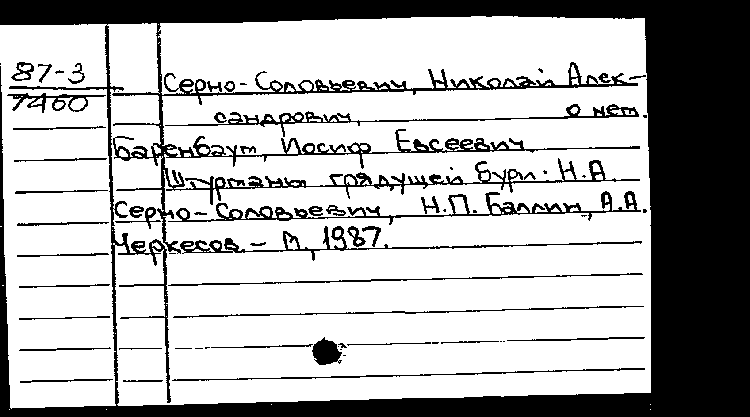 87-3
7460
Серно-Соловьевич, Николай Алек-
сандрович, о нем.
Баренбаум, Иосиф Евсеевич.
Штурманы грядущей бури: Н.А.
Серно-Соловьевич, Н.П. Баллин, А.А.
Черкесов. - М., 1987.